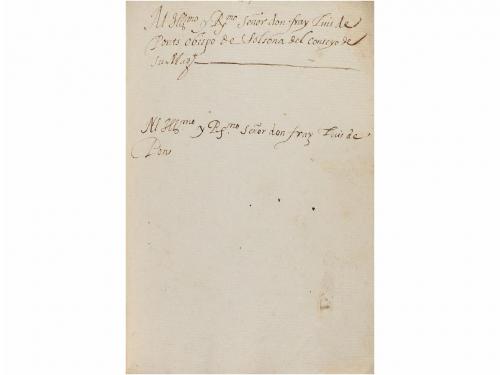 Al Illmo y Rmo señor don fray Luis de
Ponts obispo de Solsona del conseyo de
su Magd
Al Illmo y Rmo señor don fray Luis de
Pons